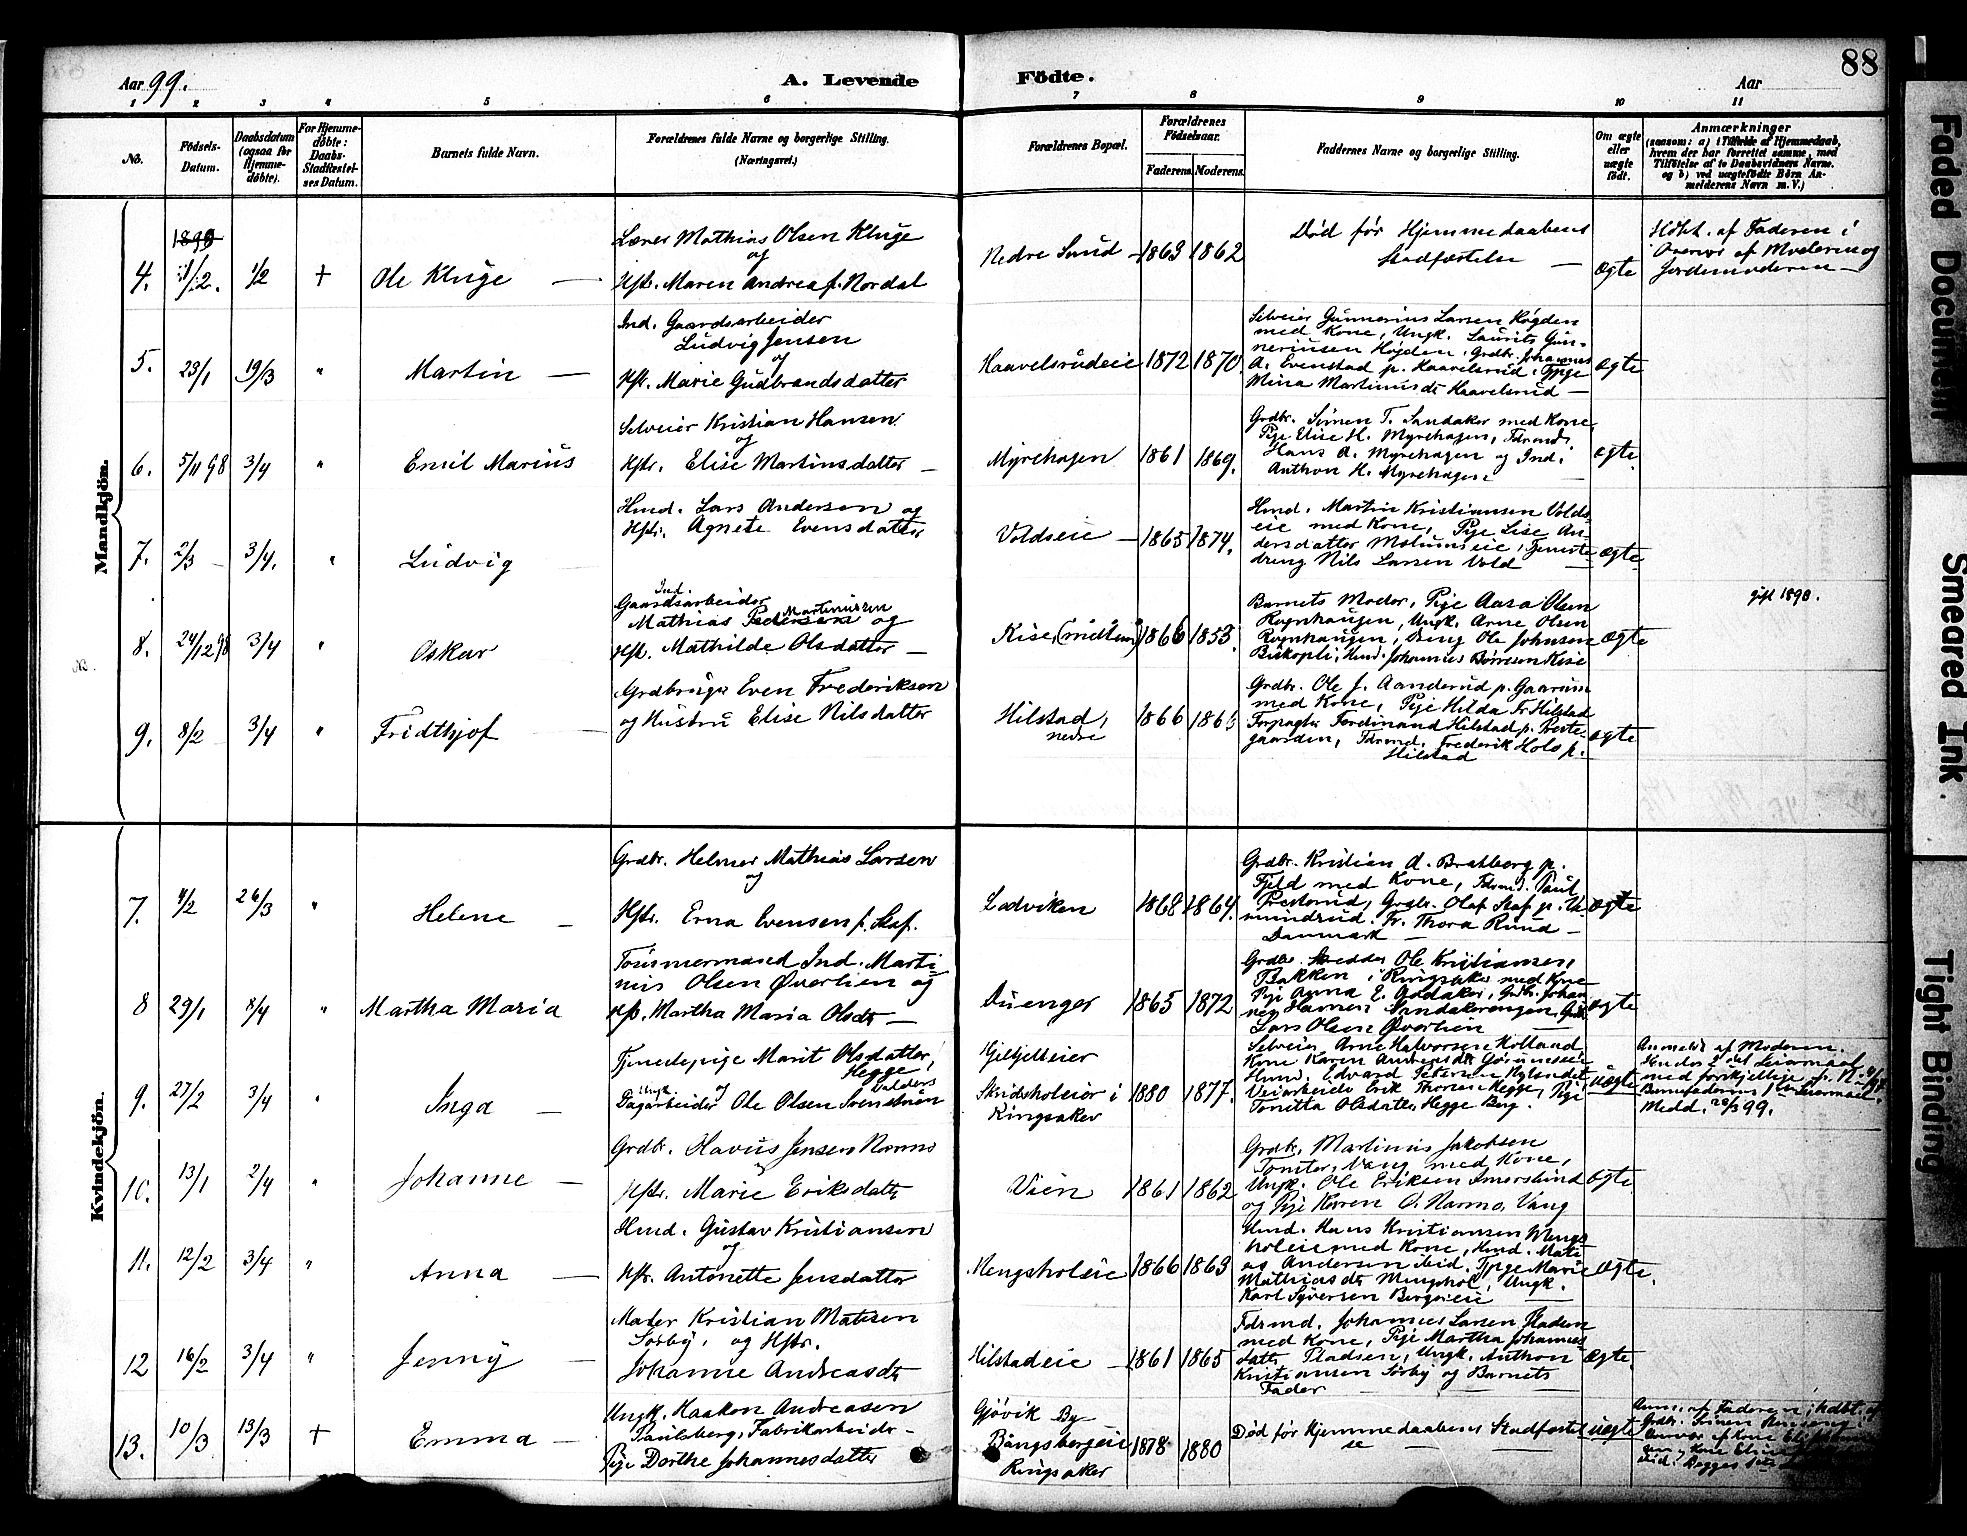 Aar 99.
A. Levende Födte.
Aar
88
1 2 3 4 5 6 7 8 9 10 11
No.
Födsels-Datum.
Daabsdatum (ogsaa for Hjemme-döbte).
For Hjemme-döbte: Daabs-Stadfæstel-ses Datum.
Barnets fulde Navn.
Forældrenes fulde Navne og borgerlige Stilling. (Næringsvei.)
Forældrenes Bopæl.
Forældrenes Födselsaar.
Faderens Moderens
Faddernes Navne og borgerlige Stilling.
Om ægte eller uægte födt.
Anmærkninger
(saasom: a) i Tilfælde af Hjemmedaab,
hvem der har forrettet samme, med
Tilföielse af to Daabsvidners Navne,
og b) ved uægtefödte Börn An-
melderens Navn m. V.)
Mandkjön.
4. 1/2 + Ole Kluge —
Lærer Mathias Olsen Kluge
og
Hst. Maren Andrea f. Nordal
Nedre Sund 1863 1862
Død før Hjemmedaabens
Stadfæstelse —
Ægte
Hdbt. af Faderen i
Overvær af Moderen og
Jordemoderen —
5. 23/1 19/3 " Martin —
Ind. Gaardsarbeider
Ludvig Jensen
og
Hst. Marie Gudbrandsdatter
Haavelsrudeie 1872 1870
Selveier Gunnerius Larsen Høgden
med Kone, Ungk. Laurits Gun-
neriusen Høgden, Grdbr. Johannes
A. Evenstad p. Haavelsrud, Pige
Mina Martinusdt Haavelsrud —
ægte
6. 5/11 98 3/4 " Emil Marius
Selveier Kristian Hansen
og
Hstr. Elise Martinsdatter —
Myrehagen 1861 1869.
Grdbr. Simen T. Sandaker med Kone,
Pige Elise H. Myrehagen, Fdrmd.
Hans A. Myrehagen og Ind.
Anthon H. Myrehagen
ægte
7. 2/3 3/4. " Ludvig
Hmd. Lars Anderson og
Hstr. Agnete Evensdatter
Voldseie — 1865 1874.
Hmd. Martin Kristiansen Volds-
eie med Kone, Pige Lise An-
dersdatter Molunseie, Tjeneste-
dreng Nils Larsen Vold
ægte
8. 24/12 98 3/4 " Oskar
Ind.
Gaardsarbeider
Martinussen
Mathias Pedersen og
Hst. Mathilde Olsdatter —
Kise, 1866 1853.
Barnets Moder, Pige Aasa Olsen
Rognhaugen, Ungk. Arne Olsen
Rognhaugen, Dreng Ole Johnsen
Biskopli, Hmd. Johannes Børresen Kise
Ægte
gift 1890.
9. 8/2 3/4 " Fridthjof —
Grdbruger Even Frederiksen
og Hustru Elise Nilsdatter
Hilstad, 1866
nedre
Grdbr. Ole J. Aanderud p. Gaarum
med Kone, Pige Hilda Fr Hilstad
Forpagter Ferdinand Hilstad p. Preste-
gaarden, Fdrmd. Frederik Hols p.
Hilstad
ægte
Kvindekjön.
7. 4/2 26/3 " Helene —
Grdbr. Helmer Mathias Larsen
og
Hstr. Erna Evensen f. Skaf.
Ladviken 1868 1864.
Grdbr. Kristian A. Bratberg p.
Fjeld med Kone, Fdrmd. Paul
Prestrud, Grdbr. Olaf Skaf p.
Fr. Thora Rund —
Danmark —
ægte
8 29/1 8/4 " Martha Maria
Tømmermand Ind. Marti-
nus Olsen Øverlien og
Hst. Martha Maria Olsdt —
Duenger 1865 1872
Grdbr. Skredder Ole Kristiansen,
Bakken i Ringsaker med Kone
Pige Anna E. Oddaker, Grdbr. Johan-
nes Hansen Sandakerengen,
Lars Olsen Øverlien
ægte
9. 27/2 3/4 " Inga —
Tjenestepige Marit Olsdatter,
Hegge
Ungk. og Valders
Dagarbeider Ole Olsen Svenstuen
Skridsholeier i 1880 1877.
Ringsaker
Selveier Arne Halvorsen Kolland
Hmd. Edvard Petersen
Veiarbeider Erik Thorsen Hegge, Pige
Tonetta Olsdatter Hegge Berg.
uægte
Anmeldt af Moderen.
Barnefaderens 1ste Leiermaal.
Medd. 99.
10. 13/1 2/4 " Johanne —
Grdbr. Havus Jensen Narmo
og
Hstr. Marie Eriksdatt
Vien 1861 1862
Grdbr. Martinus Jakobsen
Tomter, Vang med Kone,
Ungk. Ole Eriksen Imerslund
og Pige Karen O. Narmo, Vang
Ægte
11. 12/2 3/4 " Anna —
Hmd. Gustav Kristiansen
og
Hstr. Antonette Jensdatter
Mengsholeie 1866 1863
Hmd. Hans Kristiansen Mengs-
holeie med Kone, Hmd. Mati-
as Andersen ibid, Pige Marie
Mathiasdt Mengshol, Ungk.
Karl Syversen Bergseie
Ægte.
12 16/2 3/4 " Jenny —
Maler Kristian Matisen
Sørby, og Hstr.
Johanne Andreasdt
Hilstadeie — 1861 1865
Fdrmd. Johannes Larsen Pladsen
med Kone, Pige Martha Johannes-
datt. Pladsen, Ungk. Anthon
Kristiansen Sørby og Barnets
Fader —
Ægte.
13. 10/3 13/3 + Emma —
Ungk. Haakon Andreasen
Paulsberg, Fabrikarbeider —
Pige Dorthe Johannesdatter
Gjøvik By
Bangsbergeie 1878 1880
Ringsaker
Død før Hjemmedaabens Stadfæstel-
se —
uægte
Anm. af Faderen, Hdbt. af
Faded Document
Smeared Ink.
Tight Binding